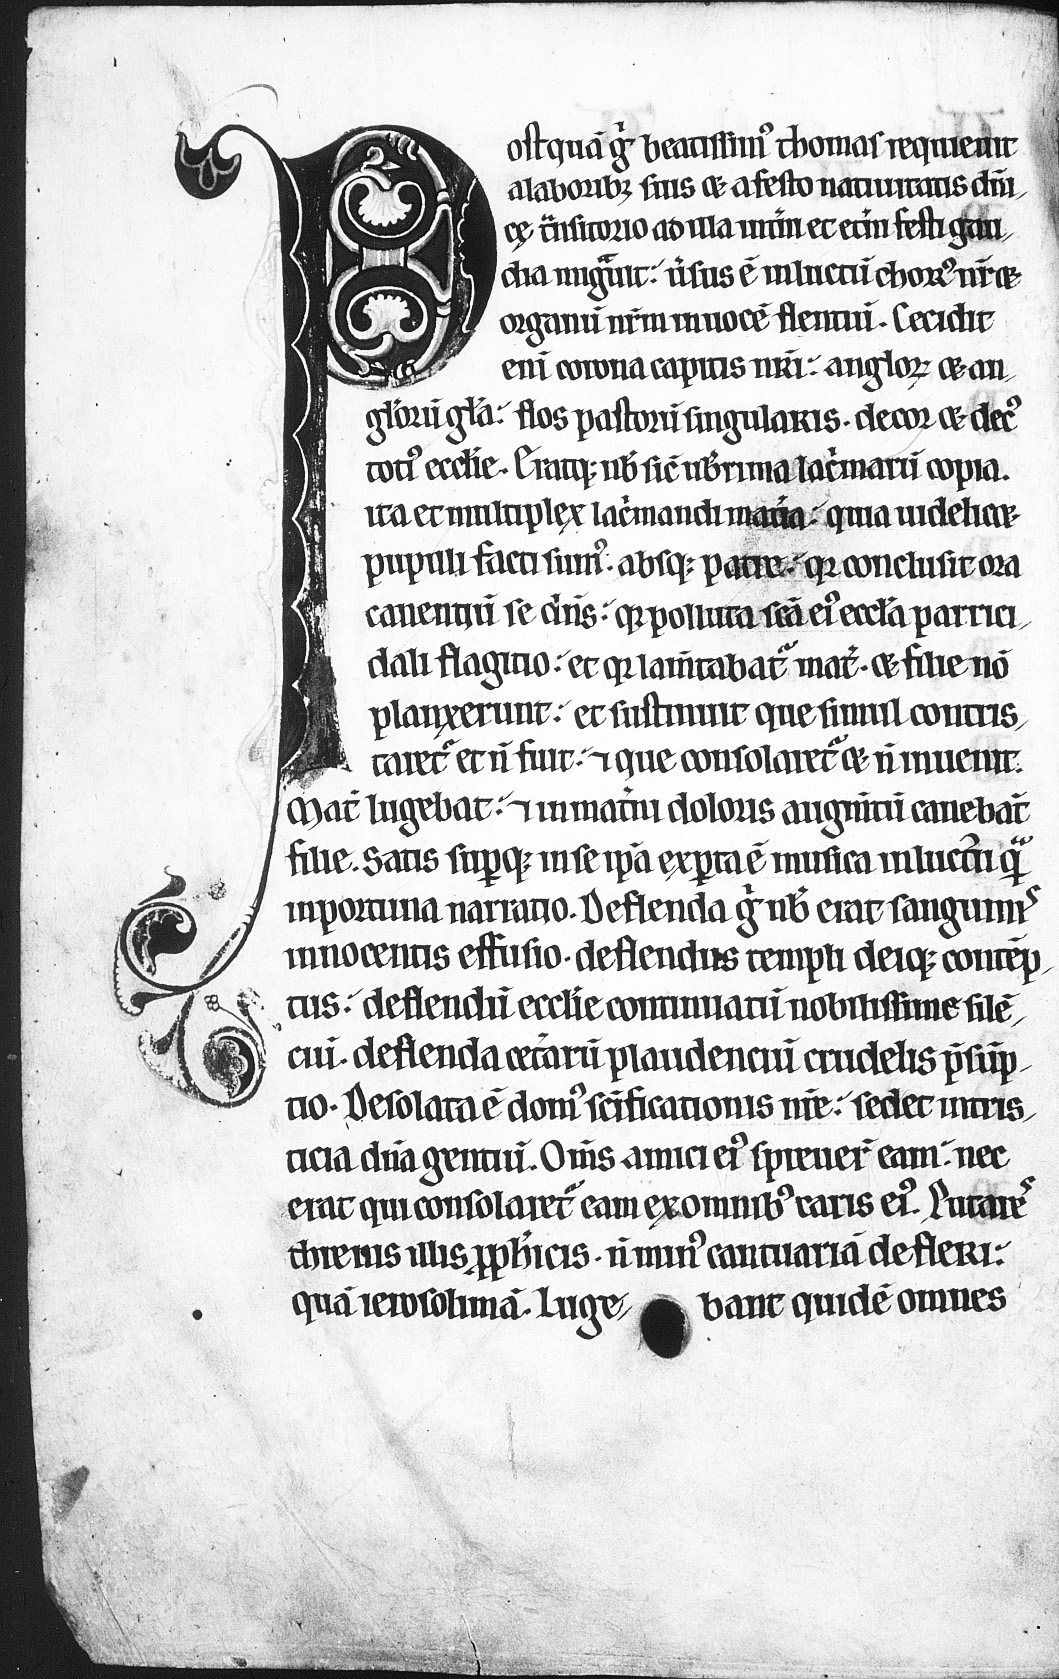 Postquā g̾ beatissim⁹ thomas requieuit
a laborib; suis & a festo natiuitatis dm̄i
cę t̾nsitorio ad illa int̾im et et̾ni festi gau
dia mig̾uit: ũsus ē in luctū chor⁹ nr̄ &
organū nr̄m in uocē flentiū. Cecidit
eni corona capitis nr̄i: angloꝝ & an
gl̾orū gl̾a: flos pastorū singularis. decor & dec⁹
toti⁹ eccl̄ie. Eratq; ub̾ sic̄ ub̾rima lac̾marū copia.
ita et multiplex lac̾mandi mat̾ia: quia uidelic&
pupilli facti sum⁹. absq; patre: qꝛ conclusit ora
canentiū se dn̄s: qꝛ polluta sc̄a ei⁹ eccl̄a parrici
dali flagitio: et qꝛ lam̄tabat᷑ mat̾. & filie nō
planxerunt: et sustinuit que simul contris
taret᷑ et n̄ fuit: ⁊ que consolaret᷑ & n̄ inuenit.
Mat̾ lugebat: ⁊ in mat̾iu doloris augm̄tū canebat̄
filie. Satis sup̲q; in se ip̄a exp̲ta ē musica in luctu qᷓ
inportuna narratio. Deflenda g̾ ub̾ erat sanguinis
innocentis effusio. deflendus templi deiq; contēp
tus: deflendū eccl̄ie continuatū nobilissime silē
ciū. deflenda cet̾arū plaudenciū crudelis p̄sūp
tio. Desolata ē dom⁹ sc̄ificationis nr̄e: sedet in tris
ticia dn̄a gentiū. Om̄s amici ei⁹ spreuer̄ eam: nec
erat qui consolaret᷑ eam ex omnib⁹ caris ei⁹. Putares
threnis illis ꝓph̾icis. n̄ min⁹ cantuariā defleri:
quā ierosolimā. Luge bant quidē omnes